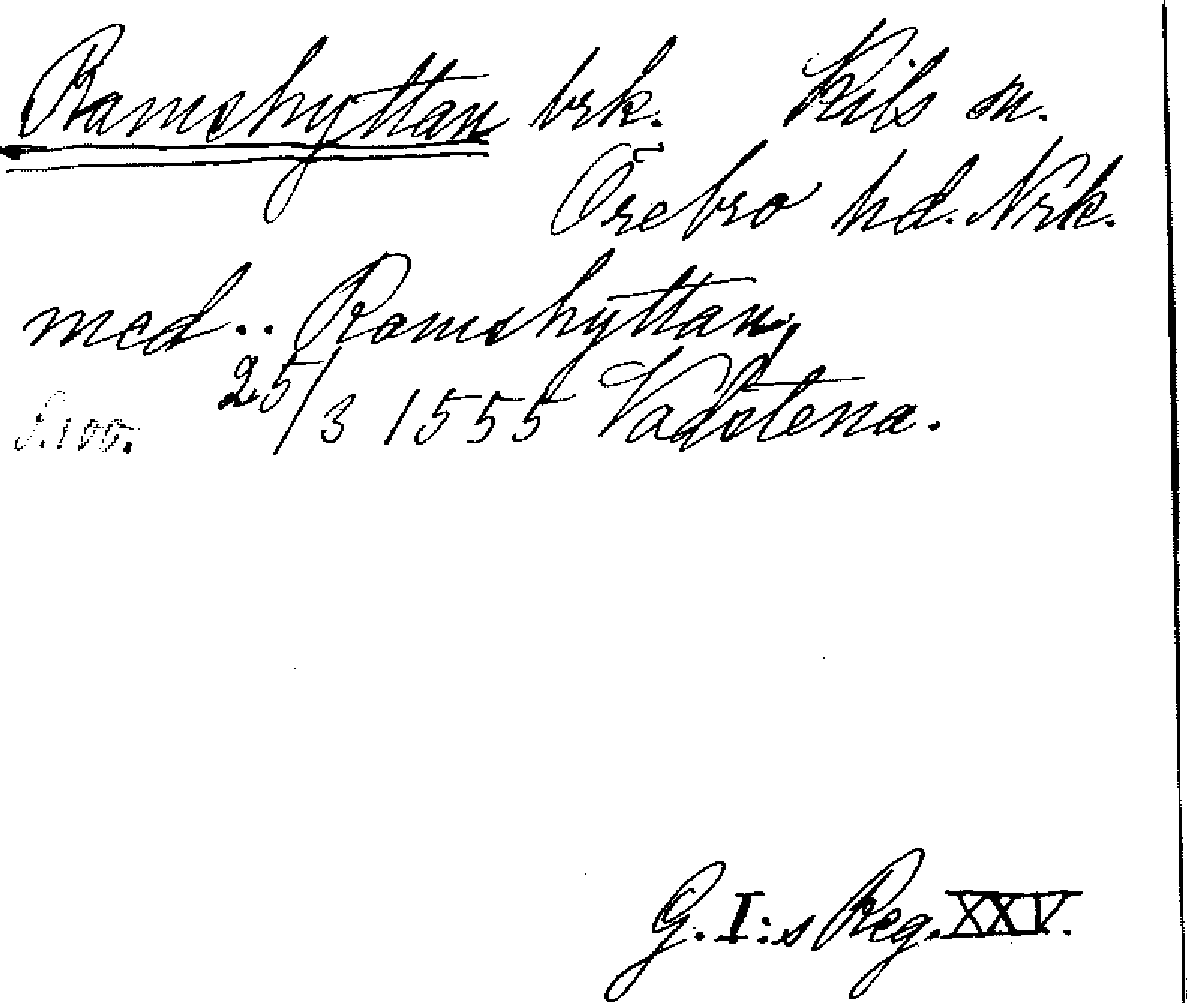 Ramshyttan brk. Kils sn.
Örebro hd. Nrk.
med.. Ramshyttan,
25/3 1555 Vadstena.
S. 100.
G. I:s Reg. XXV.